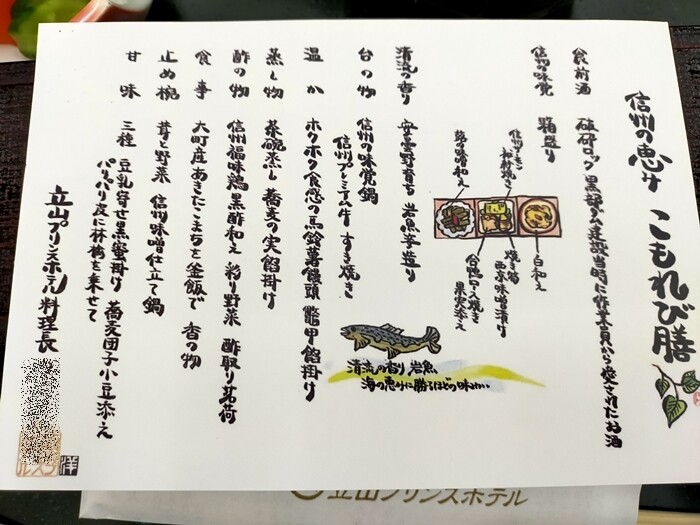 信州の恵み こもれび膳
食前酒 破砕ロック 黒部ダム建設当時に作業員から愛されたお酒
信州の味覚 箱盛り
白和え
焼き物 西京味噌漬け
信州すずき 和射焼き
台鴨ロース焼き 果実添え
蕗の味噌和え
清流の香り 安曇野育ち 岩魚姿造り
清流の香り 岩魚
海の恵みに勝るほどの味わい
台の物 信州の味覚鍋
信州プレミアム牛 すき焼き
温か ホクホク食感の馬鈴薯饅頭 鼈甲餡掛け
蒸し物 茶碗蒸し 蕎麦の実餡掛け
酢の物 信州福味鶏 黒酢和え 彩り野菜 酢取り茗荷
食事 大町産あきたこまちを釜飯で 香の物
止め椀 茸と野菜 信州味噌仕立て鍋
甘味 三種 豆乳寄せ黒蜜掛け 蕎麦団子小豆添え
パリパリ皮に林檎を乗せて
立山プリンスホテル料理長
立山プリンスホテル